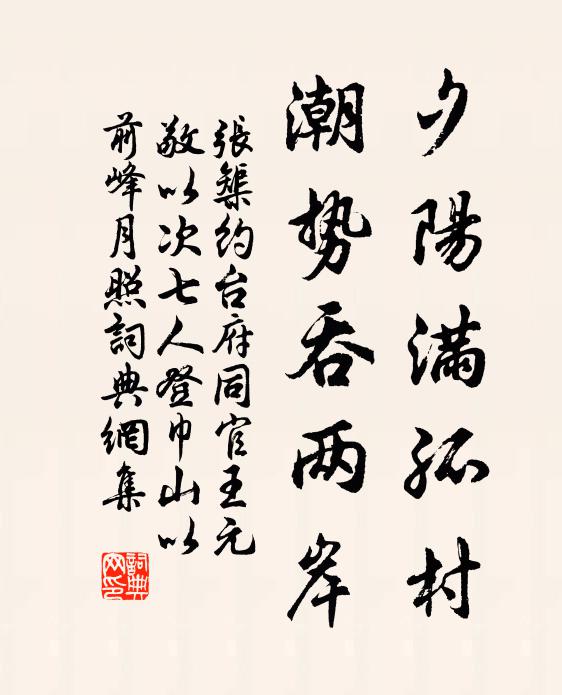 夕陽滿孤村
潮势吞两岸
張榘约台府同官王元
敬以次七人登巾山以
前峰月照詞典網集
詞典网印